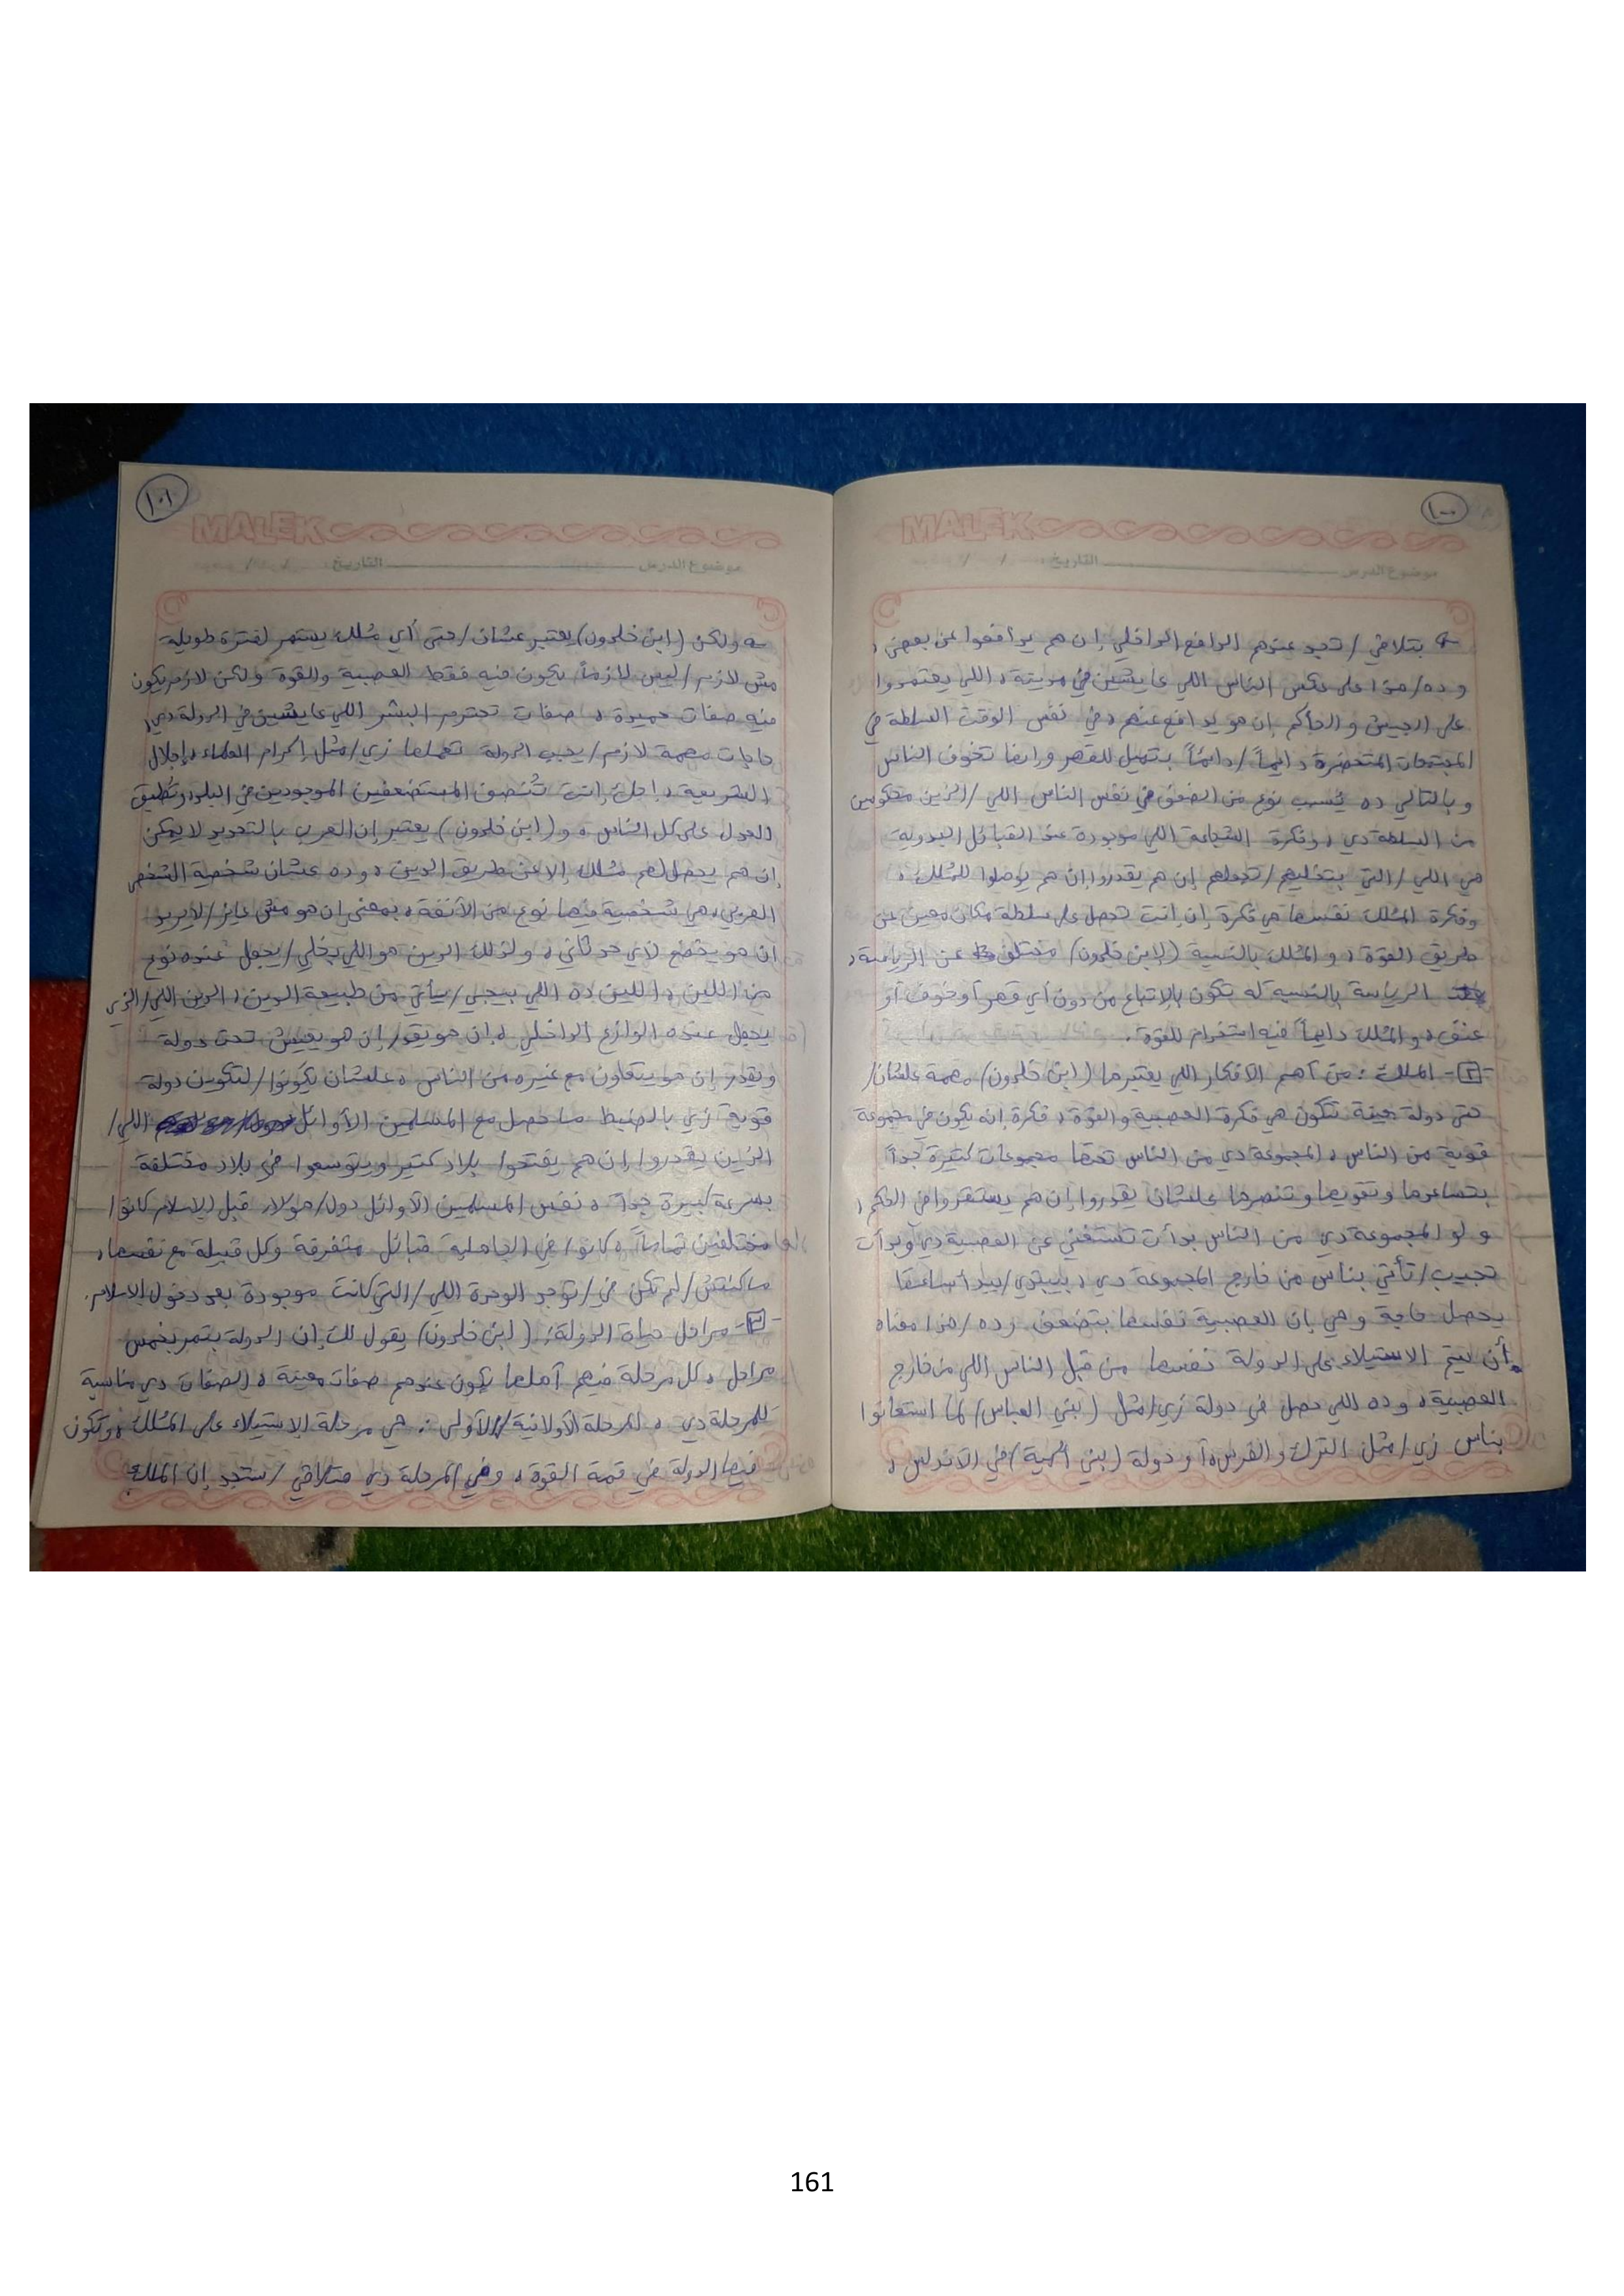 ١٠٠
MALEK
موضوع الدرس التاريخ: / /
بتلاقي / تجد عندهم الدافع الداخلي إن هم يدافعوا عن بعض،
وده/هذا على عكس الناس اللي عايشين في مدينة، اللي يعتمدوا
على الجيش والحاكم إن هو يدافع عنهم، في نفس الوقت السلطة في
المجتمعات المتحضرة دايماً/دائماً بتميل للقهر ودايما تخوف الناس
وبالتالي ده يُسبب نوع من الضعف في نفس الناس اللي/الذين محكومين
من السلطة دي، وفكرة الشجاعة اللي موجودة عند القبائل البدوية
هي اللي/التي بتخليهم/تجعلهم إن هم يقدروا إن هم يوصلوا للمُلك،
وفكرة المُلك نفسها هي فكرة إن إنت تحصل على سلطة مكان معين عن
طريق القوة، والمُلك بالنسبة (لابن خلدون) مختلف عن الرياسة،
الرياسة بالنسبة له تكون بالإتباع من دون أي قهر أو خوف أو
عنف، والمُلك دايماً فيه استخدام للقوة.
-[٢]- المُلك: من أهم الأفكار اللي يعتبرها (ابن خلدون) مهمة علشان/
حتى دولة معينة تتكون هي فكرة العصبية والقوة، فكرة إنه يكون في مجموعة
قوية من الناس، المجموعة دي من الناس تحتها مجموعات كتيرة جداً
بتساعدها وتقويها وتنصرها علشان يقدروا إن هم يستقروا في الحكم،
ولو المجموعة دي من الناس بدأت تستغني عن العصبية دي وبدأت
تجيب/تأتي بناس من خارج المجموعة دي، بيبتدي/يبدأ ساعتها
يحصل حاجة وهي إن العصبية نفسها بتضعف وده/هذا معناه
أن ليتم الاستيلاء على الدولة نفسها من قبل الناس اللي من خارج
العصبية، وده اللي حصل في دولة زي/مثل (بني العباس) لما استعانوا
بناس زي/مثل الترك والفرس، أو دولة (بني أمية) في الأندلس،
١٠١
MALEK
موضوع الدرس التاريخ: / /
ولكن (ابن خلدون) يعتبر عشان/حتى أي مُلك يستمر لفترة طويلة
مش لازم/ليس لازماً يكون فيه فقط العصبية والقوة ولكن لازم يكون
فيه صفات حميدة، صفات تحترم البشر اللي عايشين في الدولة دي،
حاجات مهمة لازم/يجب الدولة تعملها زي/مثل إكرام العلماء، إجلال
الشريعة، إن إنت تُنصف المستضعفين الموجودين في البلد، وتُطبق
العدل على كل الناس، و(ابن خلدون) يعتبر إن العرب بالتحديد لا يمكن
إن هم يحصل لهم مُلك إلا عن طريق الدين، وده عشان شخصية الشخص
العربي، هي شخصية فيها نوع من الأنفة، بمعنى إن هو مش عايز/لا يريد
إن هو يخضع لأي حد تاني، ولذلك الدين هو اللي يخلي/يجعل عنده نوع
من اللين، اللين ده اللي بيجي/سيأتي من طبيعة الدين، الدين اللي/الذي
يجعل عنده الوازع الداخلي، إن هو يقدر إن هو يعيش تحت دولة
ويقدر إن هو يتعاون مع غيره من الناس، علشان يكونوا/لتكوين دولة
قوية زي بالضبط ما حصل مع المسلمين الأوائل اللي/
الذين يقدروا إن هم يفتحوا بلاد كتير ويتوسعوا في بلاد مختلفة
بسرعة كبيرة جداً، نفس المسلمين الأوائل دول/هؤلاء قبل الإسلام كانوا
مختلفين تماماً، كانوا في الجاهلية قبائل متفرقة وكل قبيلة مع نفسها،
ماكنتش/لم تكن في/توجد الوحدة اللي/التي كانت موجودة بعد دخول الإسلام.
-[٣]- مراحل حياة الدولة: (ابن خلدون) يقول لك إن الدولة بتمر بخمس
مراحل، كل مرحلة فيهم أهلها يكون عندهم صفات معينة، الصفات دي مناسبة
للمرحلة دي، المرحلة الأولانية/الأولى: هي مرحلة الاستيلاء على المُلك، وتكون
فيها الدولة في قمة القوة، وفي المرحلة دي هتلاقي/ستجد إن الملك
161